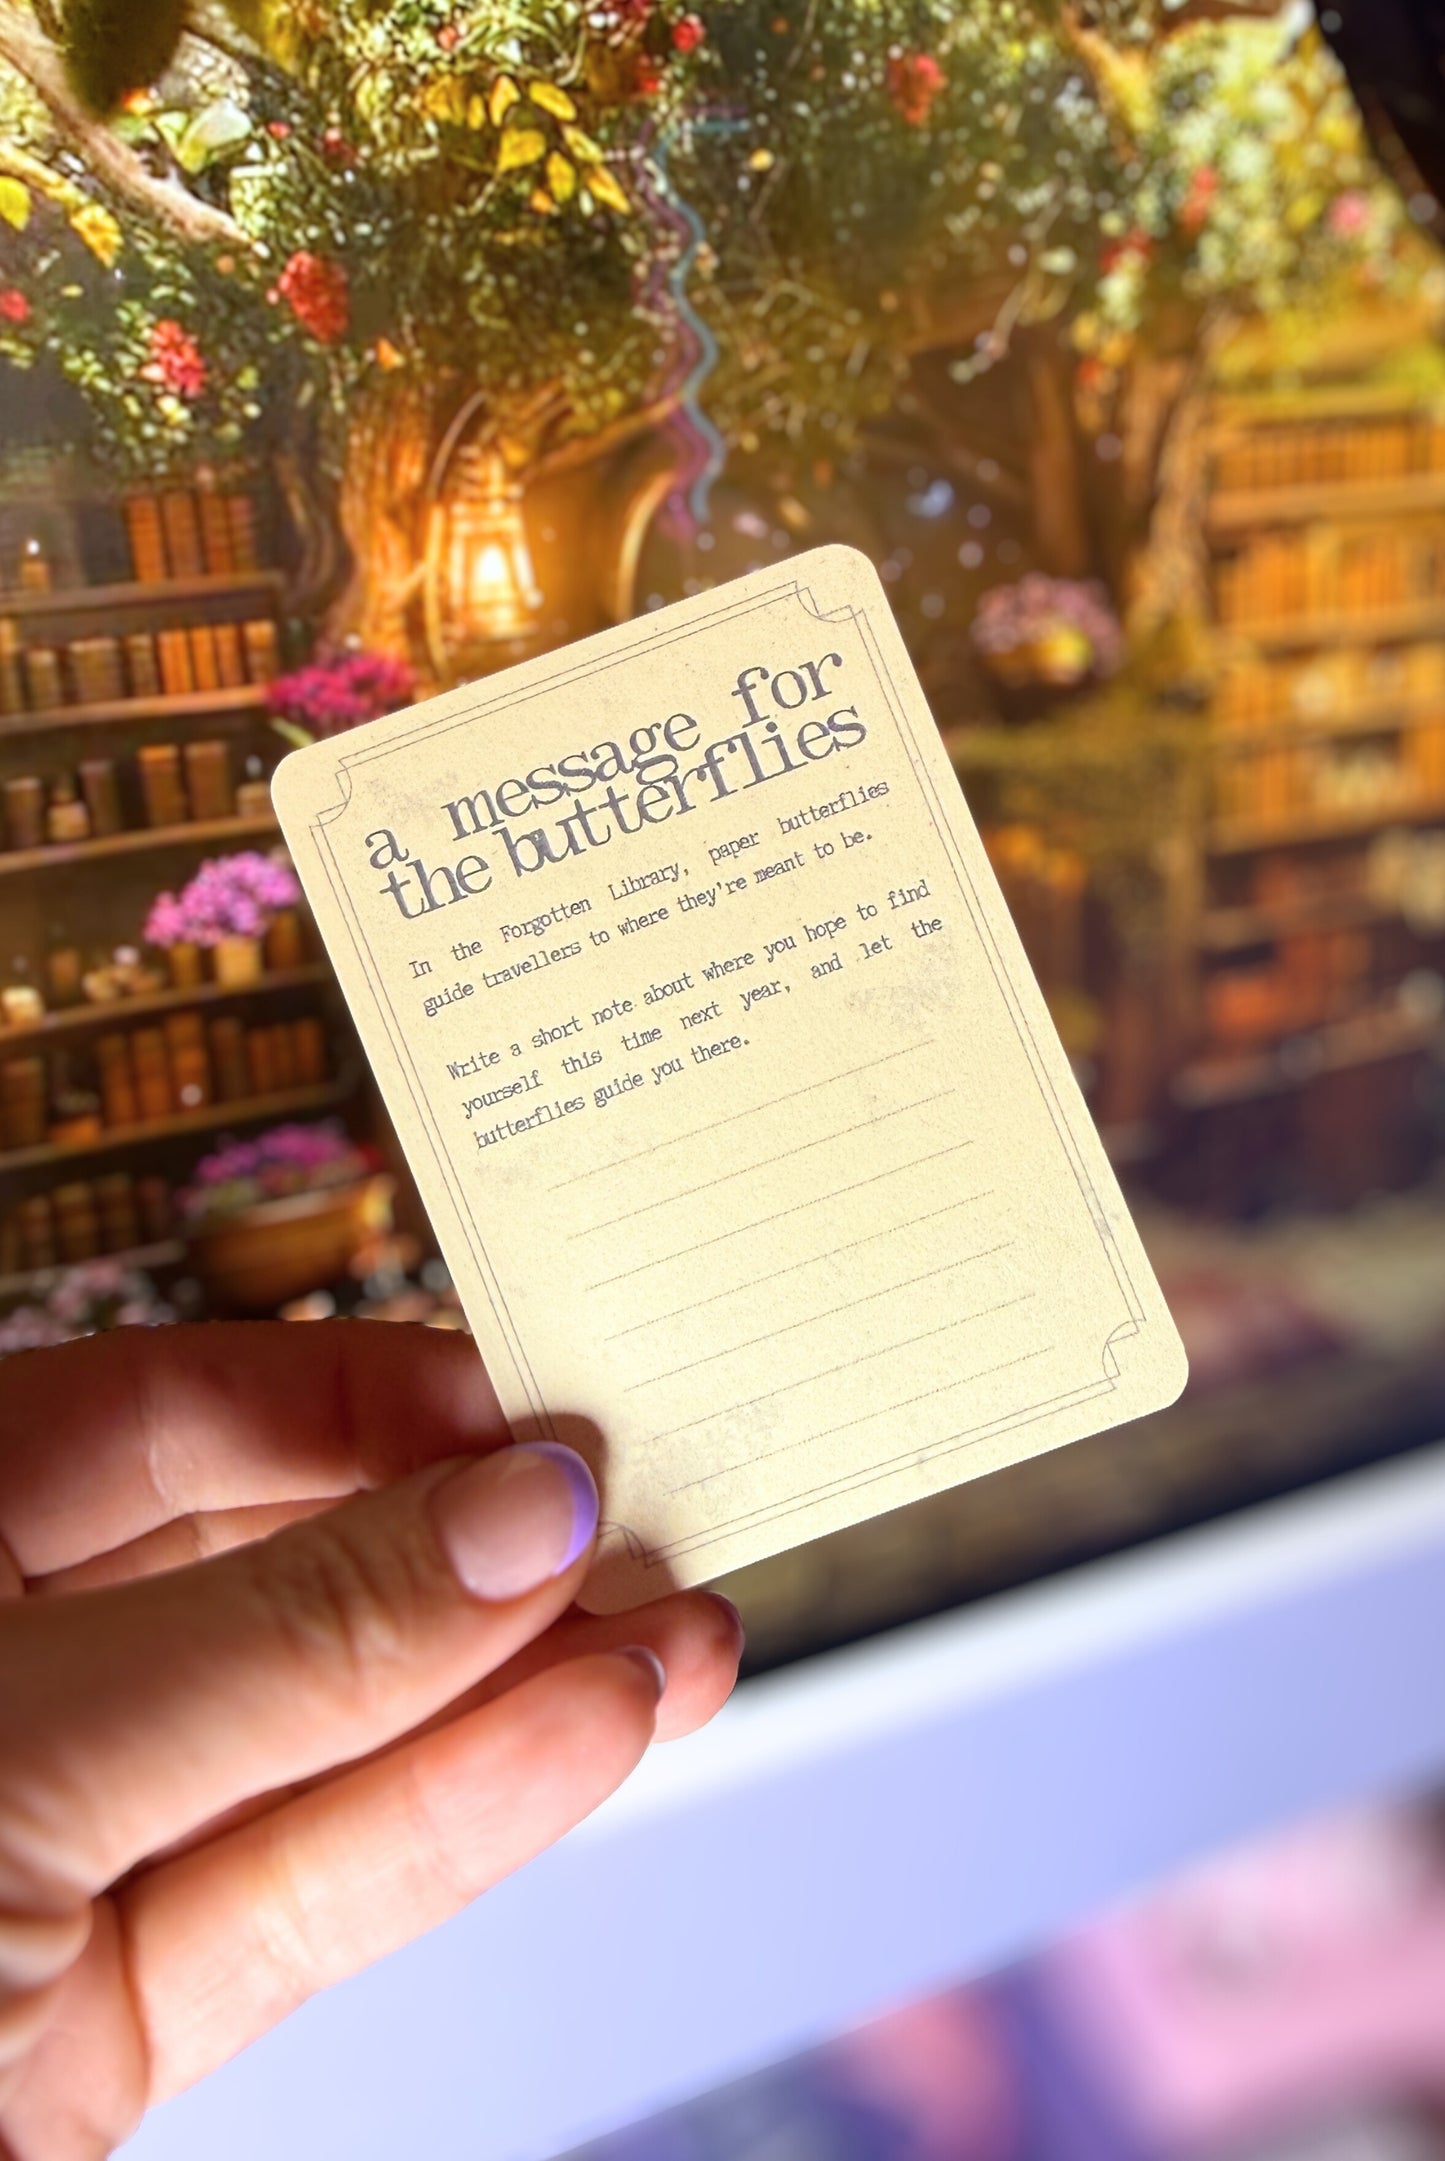 a message for
the butterflies
In the Forgotten Library, paper butterflies
guide travellers to where they're meant to be.
Write a short note about where you hope to find
yourself this time next year, and let the
butterflies guide you there.